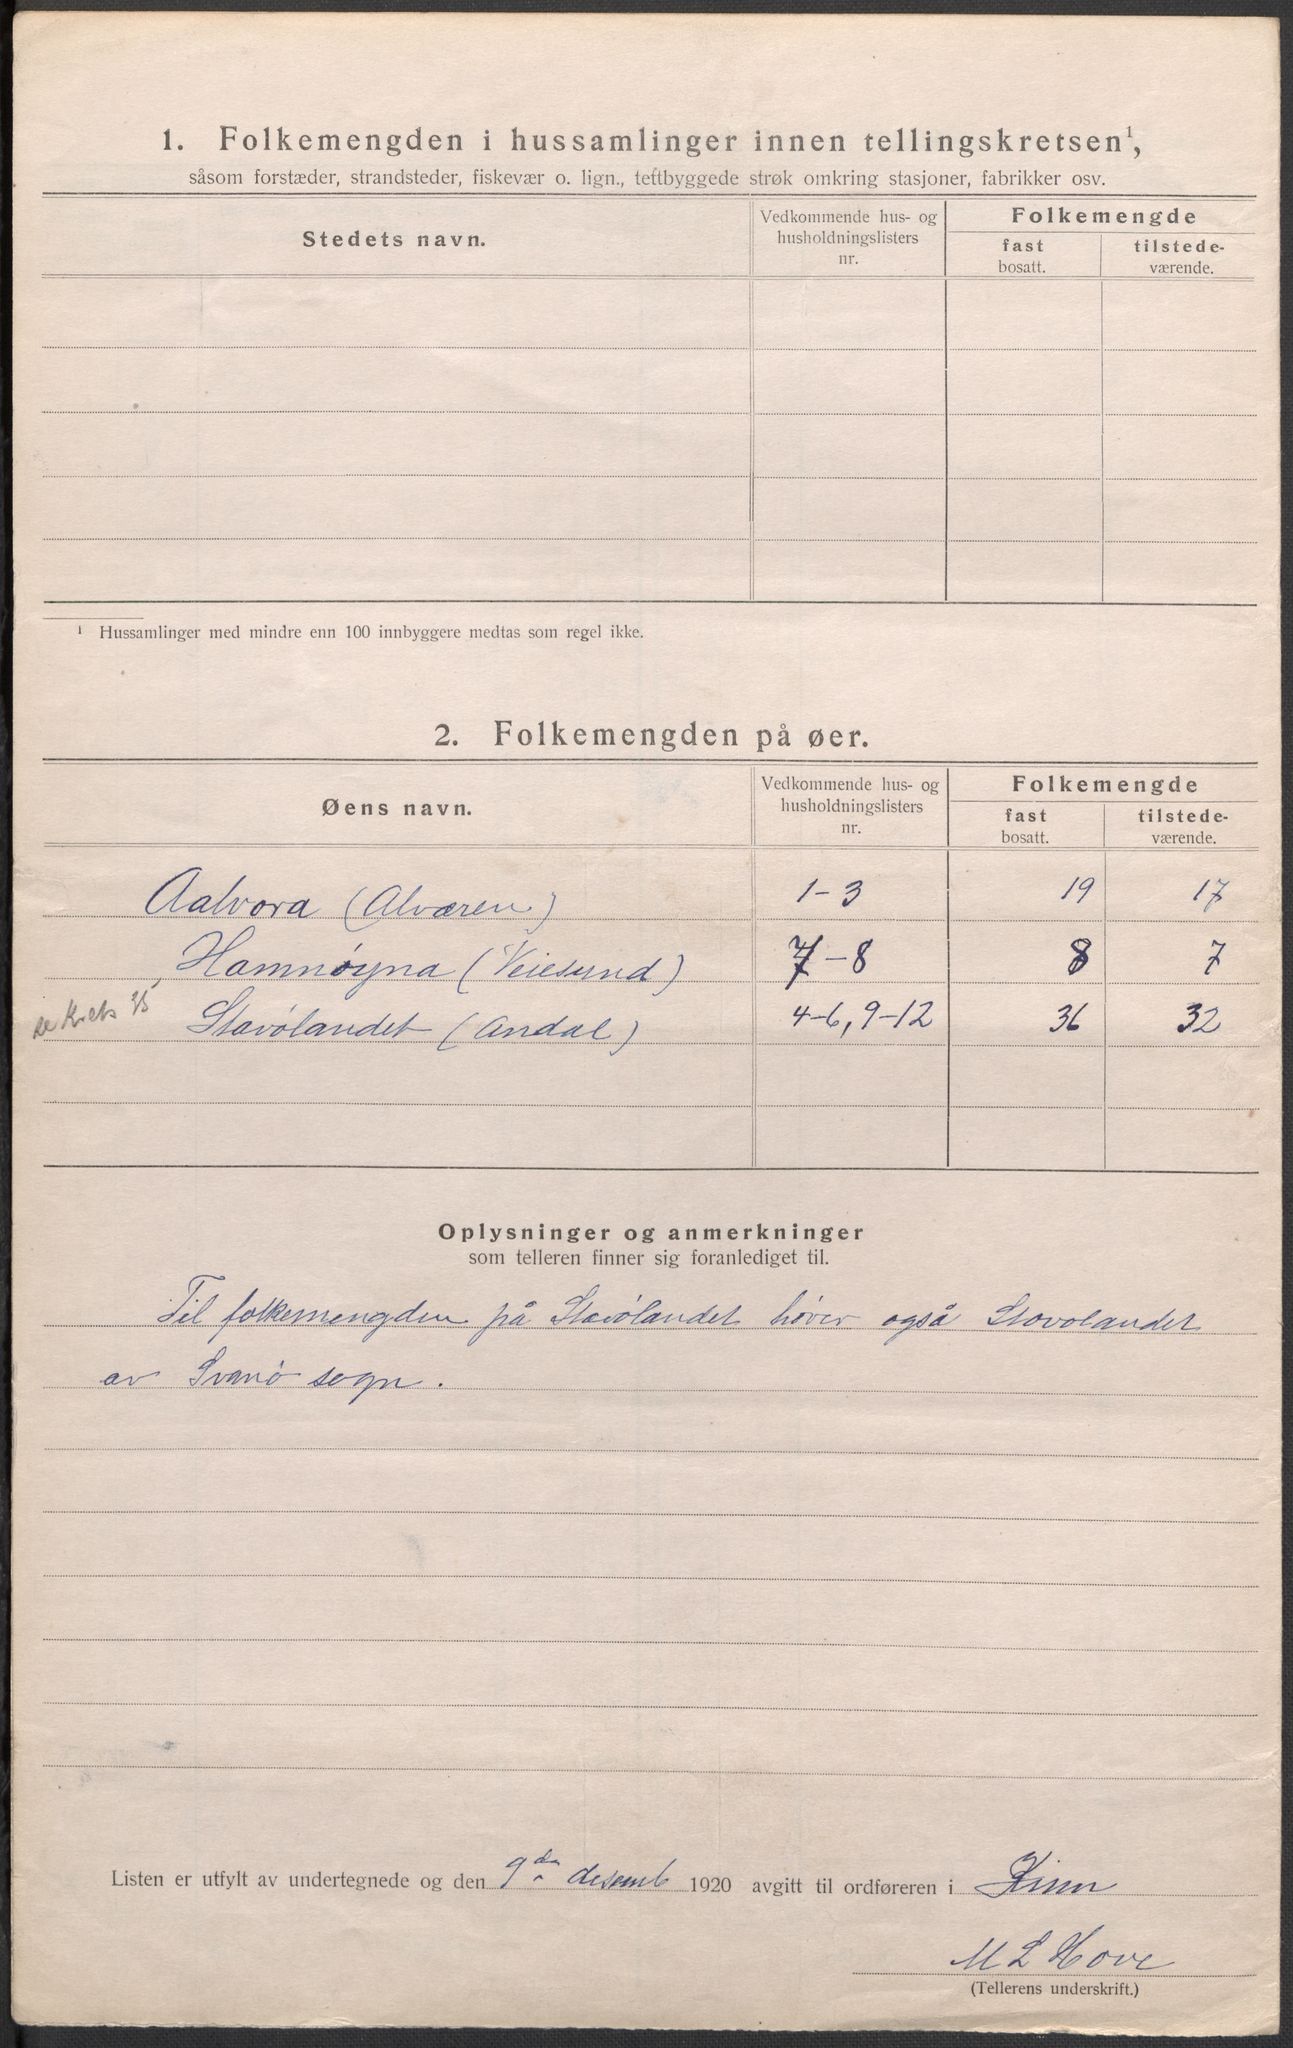 1. Folkemengden i hussamlinger innen tellingskretsen¹,
såsom forstæder, strandsteder, fiskevær o. lign., tettbyggede strøk omkring stasjoner, fabrikker osv.
Stedets navn.
Vedkommende hus- og husholdningslisters nr.
Folkemengde
fast bosatt.
tilstede-værende.
¹ Hussamlinger med mindre enn 100 innbyggere medtas som regel ikke.
2. Folkemengden på øer.
Øens navn.
Vedkommende hus- og husholdningslisters nr.
Folkemengde
fast bosatt.
tilstede-værende.
Aalvora (Alværen) 1-3 19 17
Hamnøyna (Veiesund) 7-8 8 7
se Krets 35 Stavølandet (Andal) 4-6, 9-12 36 32
Oplysninger og anmerkninger
som telleren finner sig foranlediget til.
Til folkemengden på Stavølandet hører også Stovolandet
av Svanø sogn.
Listen er utfylt av undertegnede og den 9de desemb 1920 avgitt til ordføreren i Kinn
M L Hove
(Tellerens underskrift.)